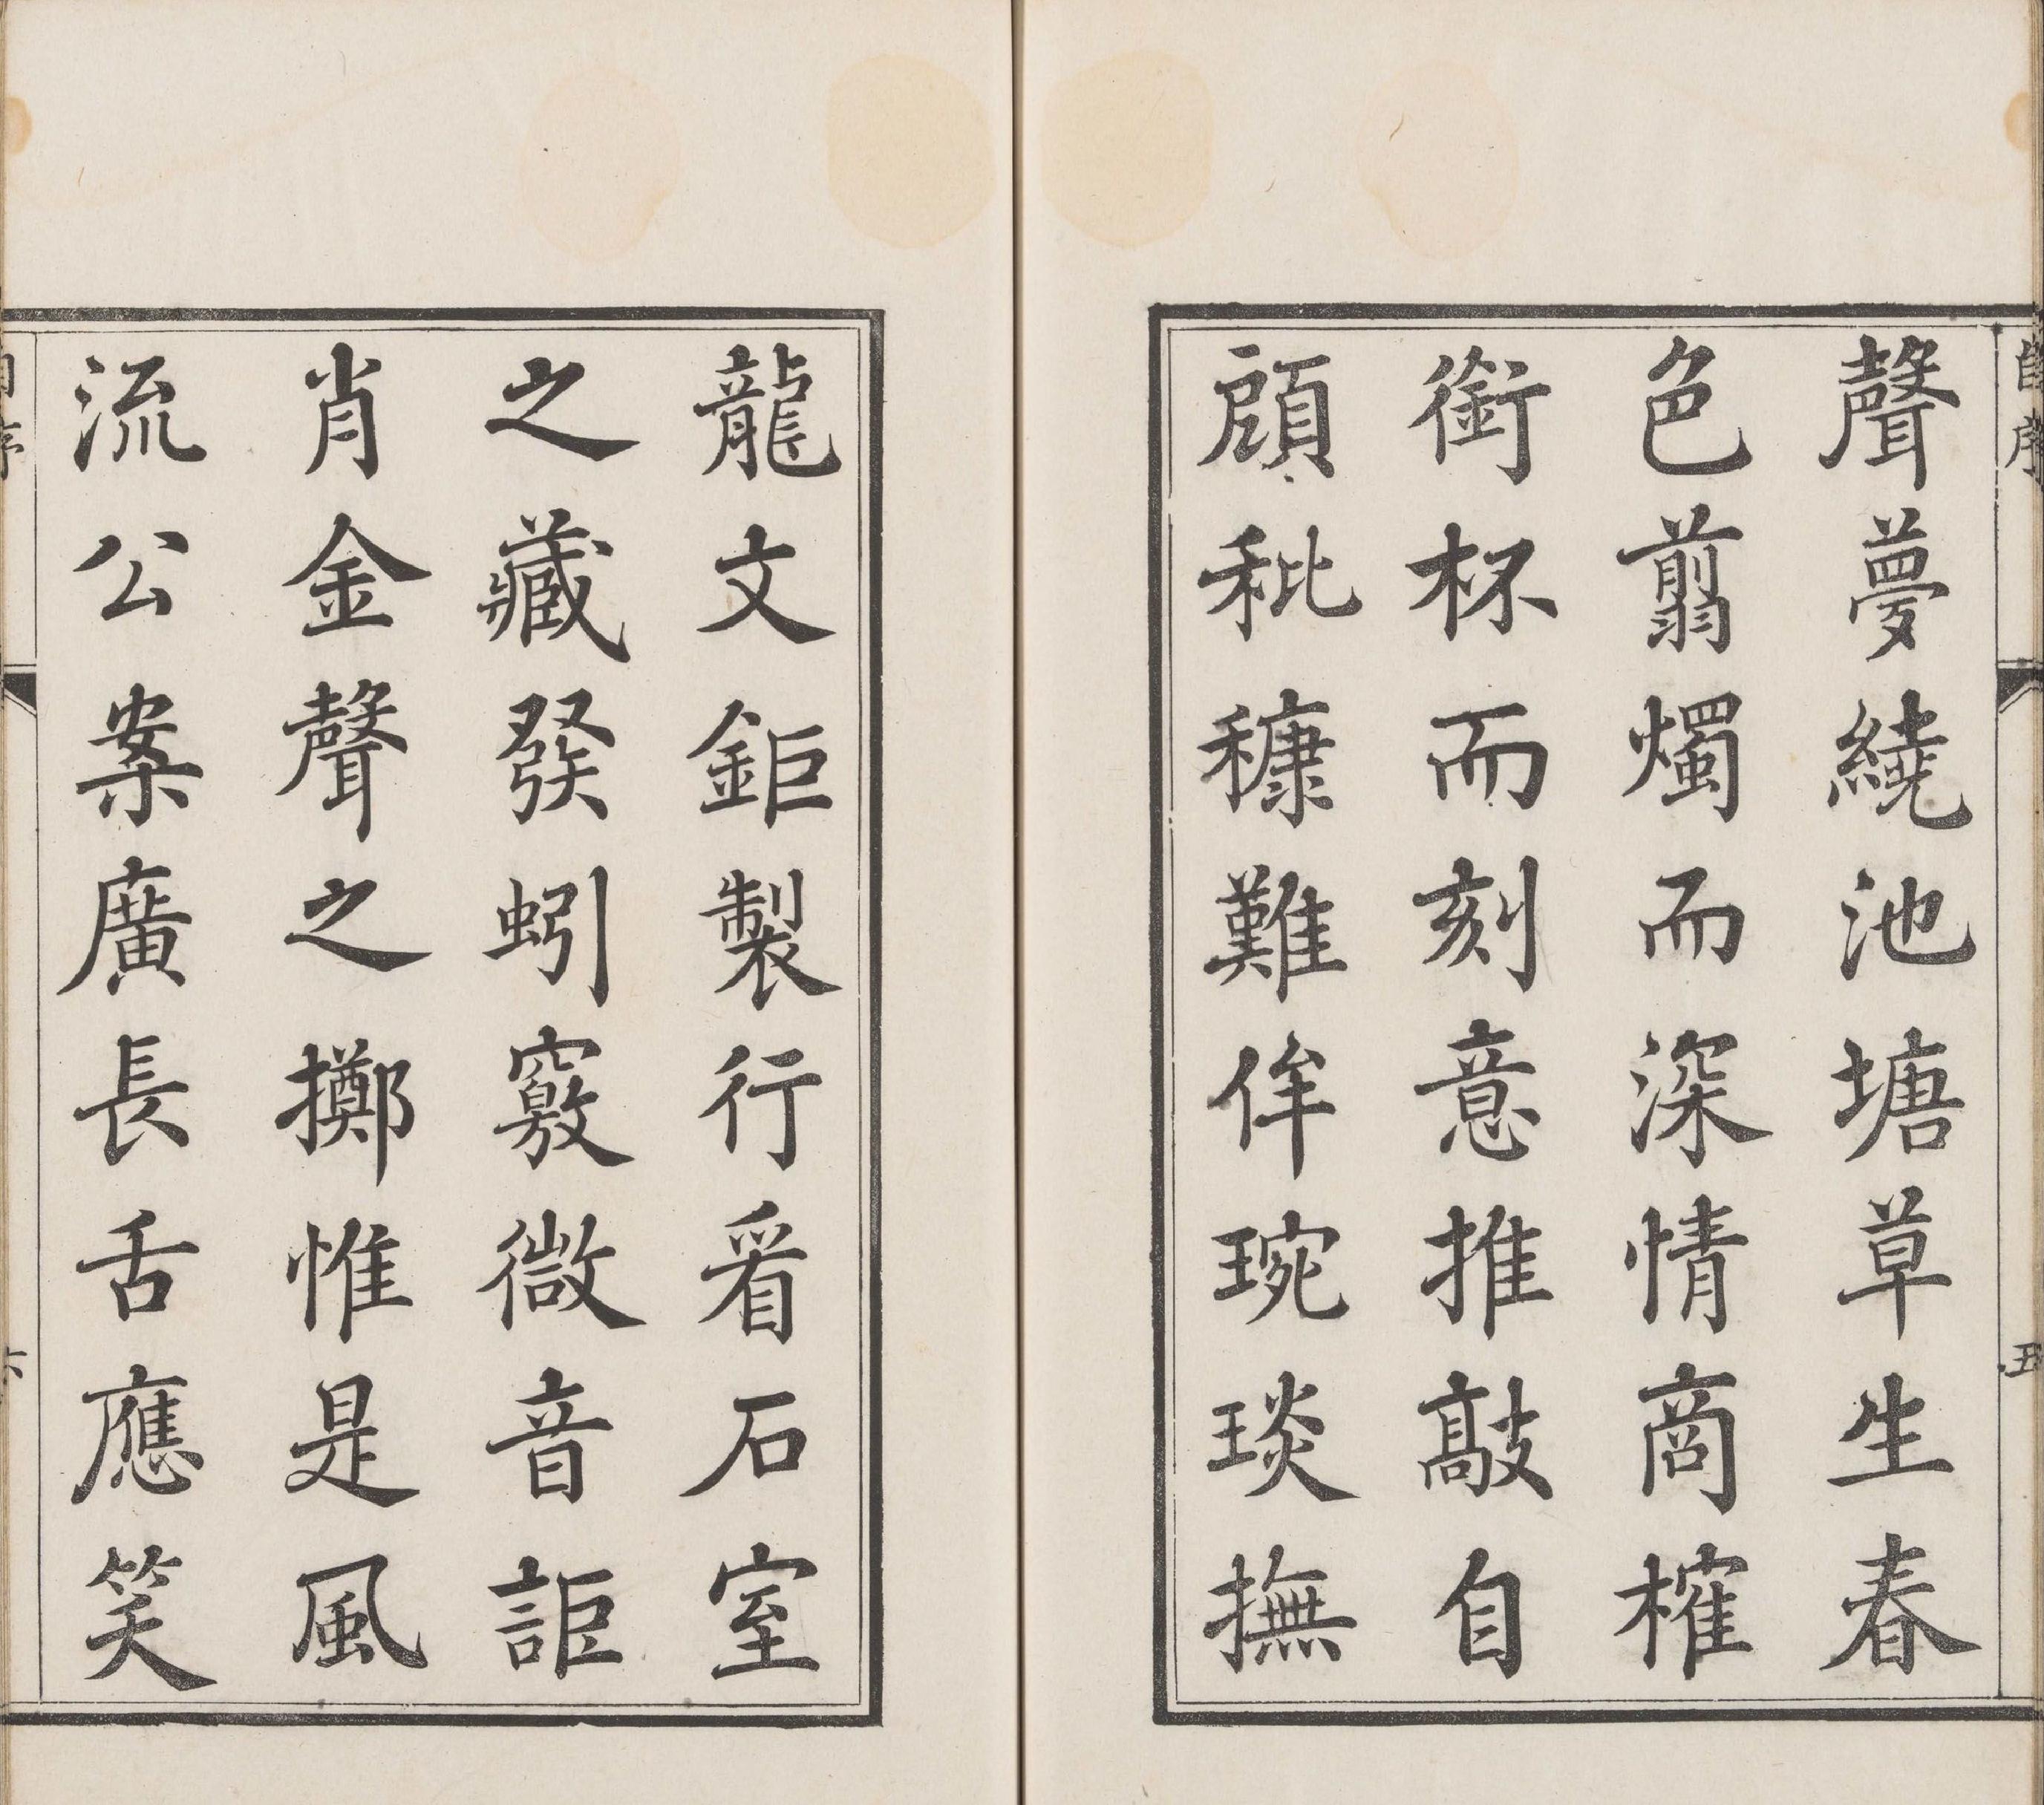 自序
五
聲夢繞池塘草生春
色翦燭而深情商榷
銜杯而刻意推敲自
顧秕穅難侔琬琰撫
龍文鉅製行看石室
之藏發蚓竅微音詎
肖金聲之擲惟是風
流公案廣長舌應笑
自序
六